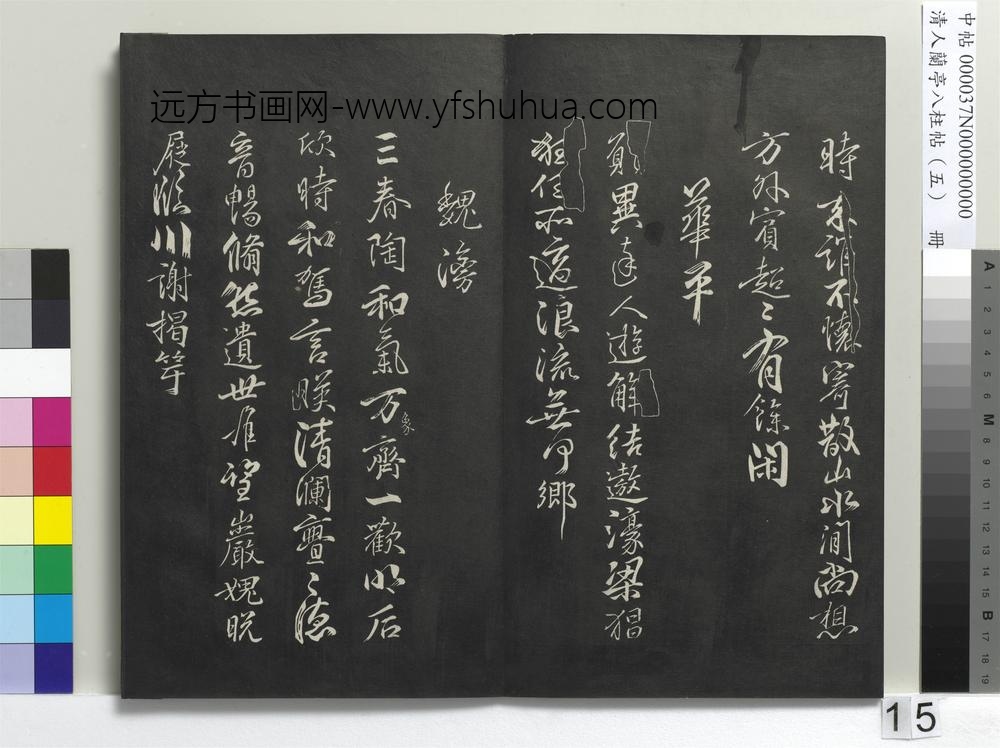 中帖 000037N000000000
清人蘭亭八柱帖(五) 冊
远方书画网-www.yfshuhua.com
時來誰不懷寄散山水間尚想
方外賓超〻有餘閑
華平
願異達人遊解結遨濠梁猖
狂任所適浪流無何鄉
魏滂
三春陶和氣万象齊一歡明后
欣時和駕言暎清瀾亹〻德
音暢脩然遺世唯望巖愧脫
屣臨川謝揭竿
A 1 2 3 4 5 6 M 8 9 10 11 12 13 14 15 B 17 18 19
15